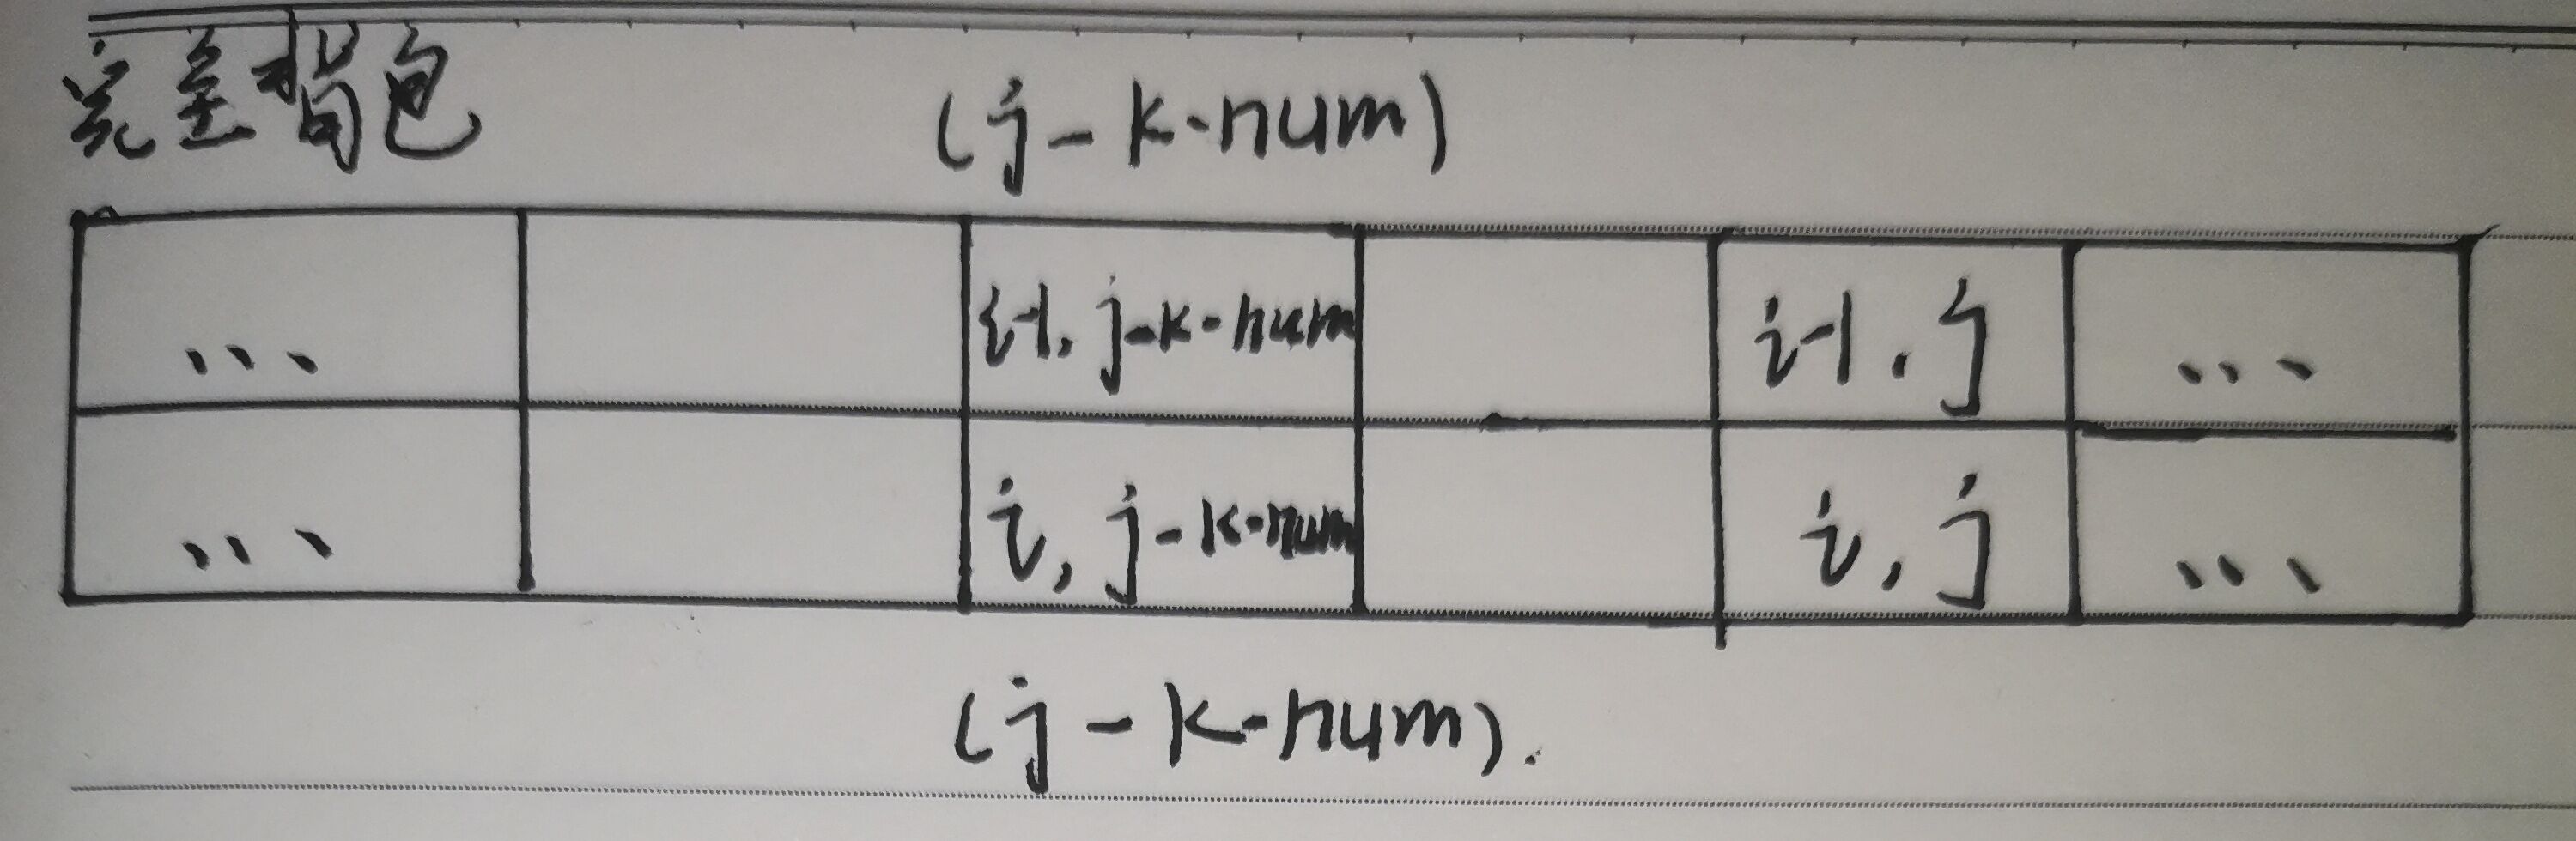 完全背包
(j-k·num)
... i-1, j-k·num i-1, j ...
... i, j-k·num i, j ...
(j-k·num).